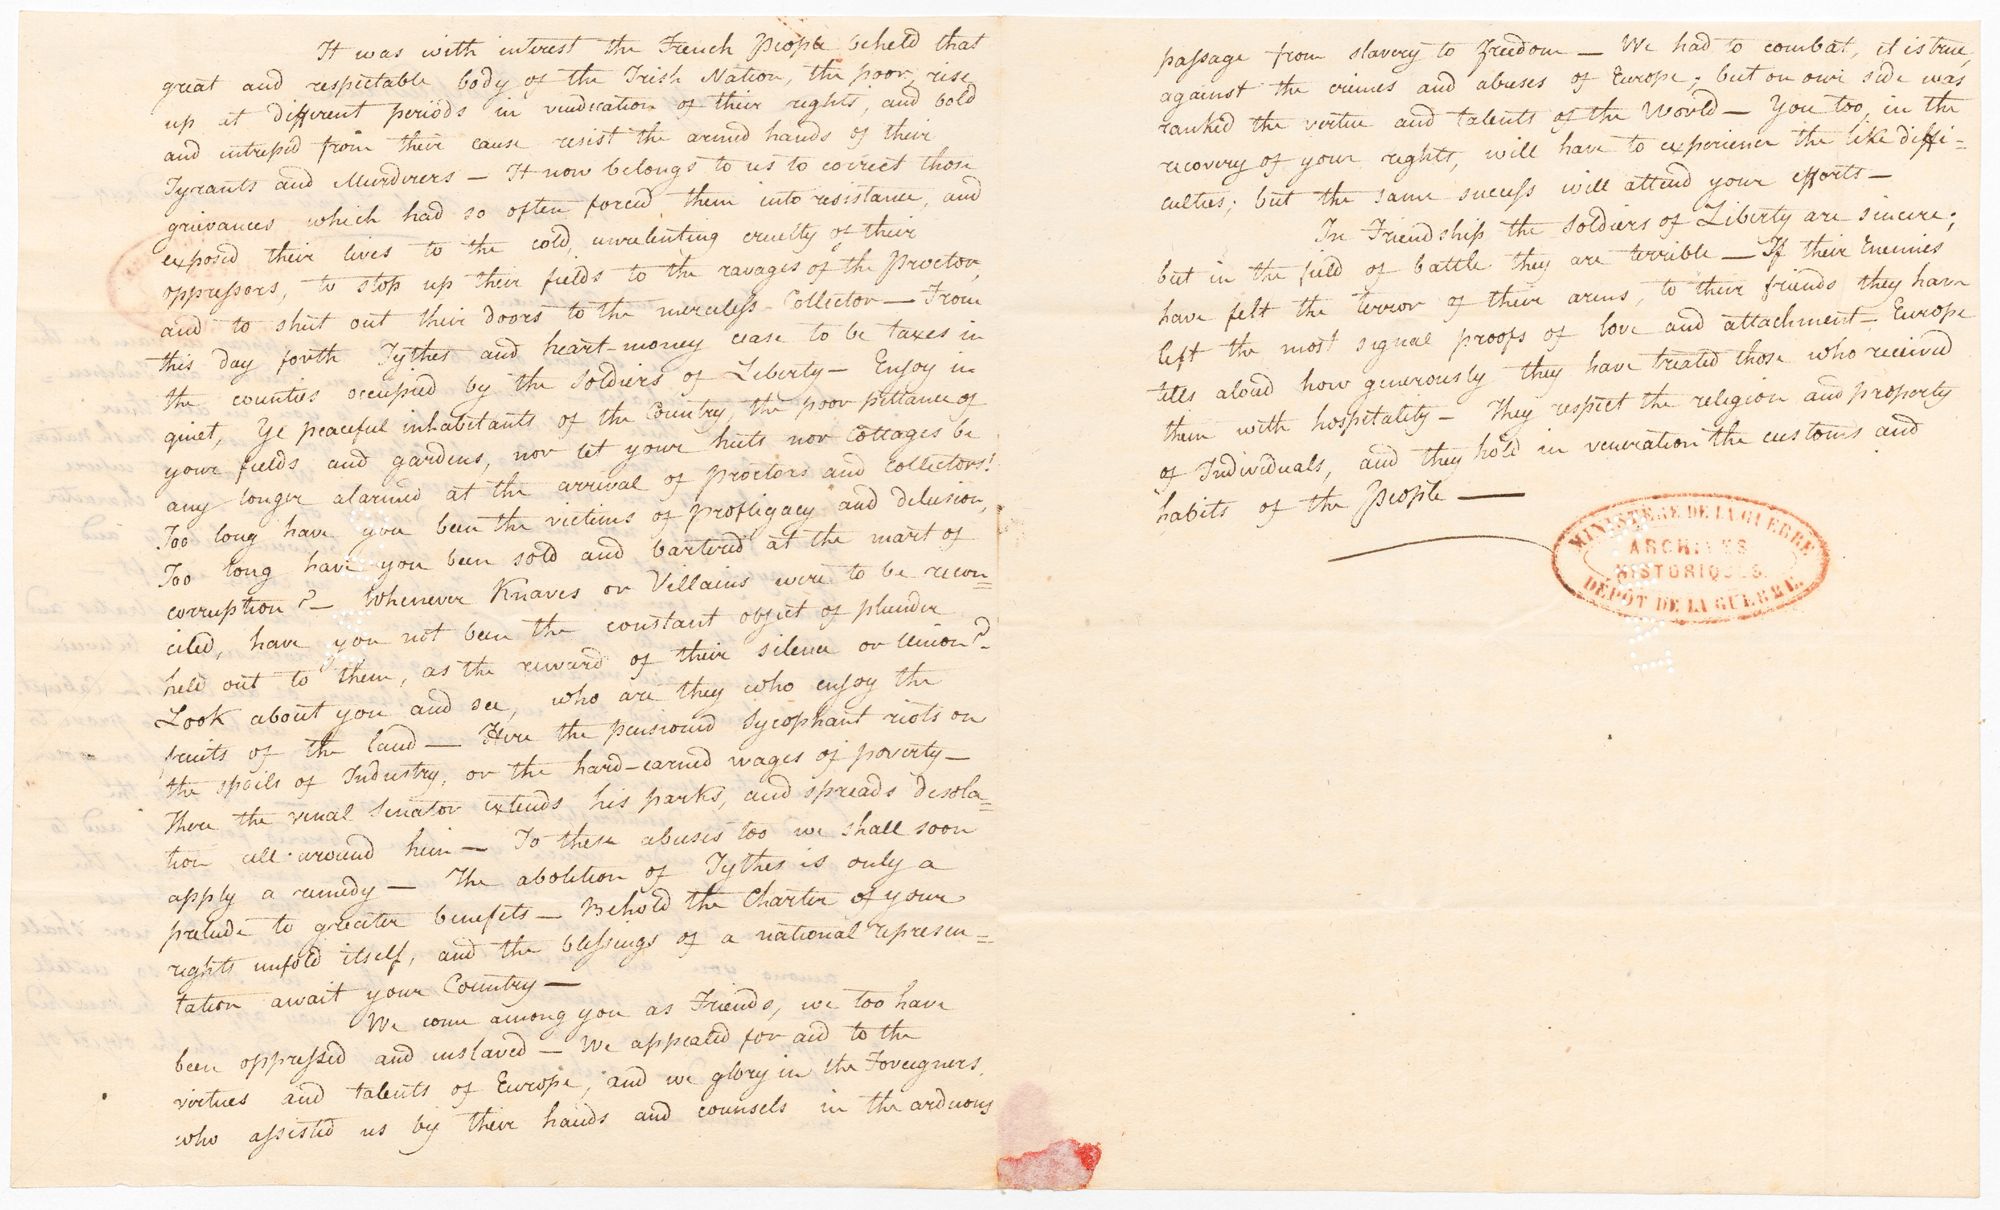 It was with interest the French People beheld that
great and respectable body of the Irish Nation, the poor, rise
up at different periods in vindication of their rights, and bold
and intrepid from their cause resist the armed hands of their
Tyrants and Murderers — It now belongs to us to correct those
grievances which had so often forced them into resistance, and
exposed their lives to the cold, unrelenting cruelty of their
oppressors, to stop up their fields to the ravages of the Proctor,
and to shut out their doors to the merciless Collector — From
this day forth Tythes and heart-money cease to be taxes in
the counties occupied by the soldiers of Liberty — Enjoy in
quiet, Ye peaceful inhabitants of the Country, the poor pittance of
your fields and gardens, nor let your huts nor cottages be
any longer alarmed at the arrival of proctors and collectors!
Too long have you been the victims of profligacy and delusion,
Too long have you been sold and bartered at the mart of
corruption? — Whenever Knaves or Villains were to be recon=
ciled, have you not been the constant object of plunder
held out to them, as the reward of their silence or Union? —
Look about you and see, who are they who enjoy the
fruits of the land — Here the pensioned Sycophant riots on
the spoils of Industry, or the hard-earned wages of poverty —
There the venal Senator extends his parks, and spreads desola=
tion all around him — To these abuses too we shall soon
apply a remedy — The abolition of Tythes is only a
prelude to greater benefits — Behold the Charter of your
rights unfold itself, and the blessings of a national represen=
tation await your Country —
We come among you as Friends, we too have
been oppressed and enslaved — We appealed for aid to the
virtues and talents of Europe, and we glory in the Foreigners,
who assisted us by their hands and counsels in the arduous
passage from slavery to freedom — We had to combat, it is true,
against the crimes and abuses of Europe; but on our side was
ranked the virtue and talents of the World — You too, in the
recovery of your rights, will have to experience the like diffi=
culties; but the same success will attend your efforts —
In Friendship the soldiers of Liberty are sincere;
but in the field of battle they are terrible — If their Enemies
have felt the terror of their arms, to their friends they have
left the most signal proofs of love and attachment — Europe
tells aloud how generously they have treated those who received
them with hospitality — They respect the religion and property
of Individuals, and they hold in veneration the customs and
habits of the People —
MINISTÈRE DE LA GUERRE
ARCHIVES
HISTORIQUES.
DÉPÔT DE LA GUERRE.